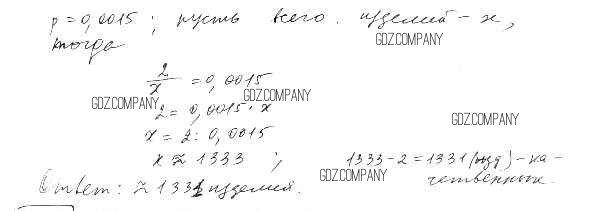 p = 0,0015 ; пусть всего изделий - x,
тогда
GDZ.COMPANY
2/x = 0,0015
GDZ.COMPANY
GDZ.COMPANY
2 = 0,0015 · x
GDZ.COMPANY
x = 2 : 0,0015
x ≈ 1333 ; 1333 - 2 = 1331 (изд) - ка-
чественных.
GDZ.COMPANY
Ответ: ≈ 1331 изделий.